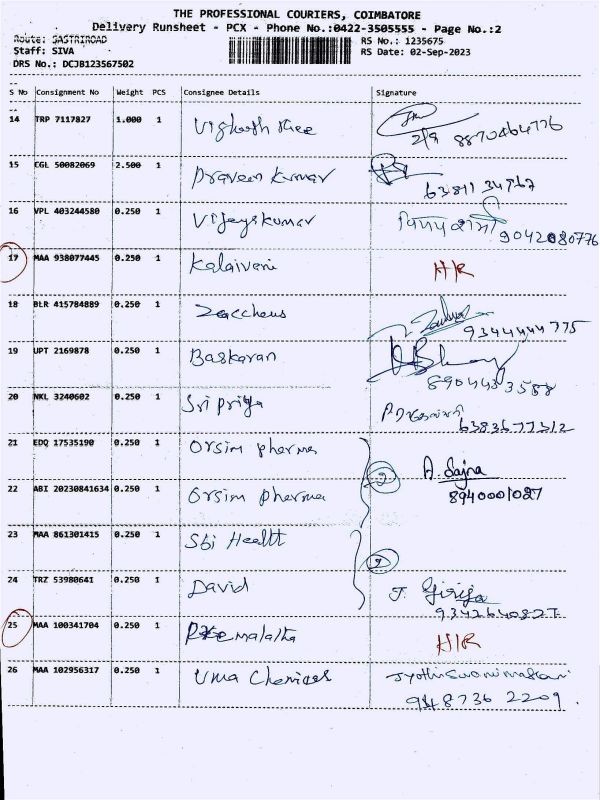 THE PROFESSIONAL COURIERS, COIMBATORE
Delivery Runsheet - PCX - Phone No.:0422-3505555 - Page No.:2
Route: SASTRIROAD
RS No.: 1235675
Staff: SIVA
RS Date: 02-Sep-2023
DRS No.: DCJB123567502
S No Consignment No Weight PCS Consignee Details Signature
14 TRP 7117827 1.000 1
2/9 8870464776
15 CGL 50082069 2.500 1 Praveen Kumar
6381134967
16 VPL 403244580 0.250 1 Vijayskumar
9042080776
17 MAA 938077445 0.250 1 Kalaivani H/R
18 BLR 415784889 0.250 1 Zaccheus
9344444775
19 UPT 2169878 0.250 1 Baskaran
8904483588
20 NKL 3240602 0.250 1 Sri priya
6383677312
21 EDQ 17535190 0.250 1 Orsim pharma
2 A. Sajna
22 ABI 20230841634 0.250 1 Orsim pharma 8940001087
23 MAA 861301415 0.250 1 Sbi Healtt
2
24 TRZ 53980641 0.250 1 David J. Girija
9342640827
25 MAA 100341704 0.250 1 H/R
26 MAA 102956317 0.250 1 Uma Chemices
948736 2209